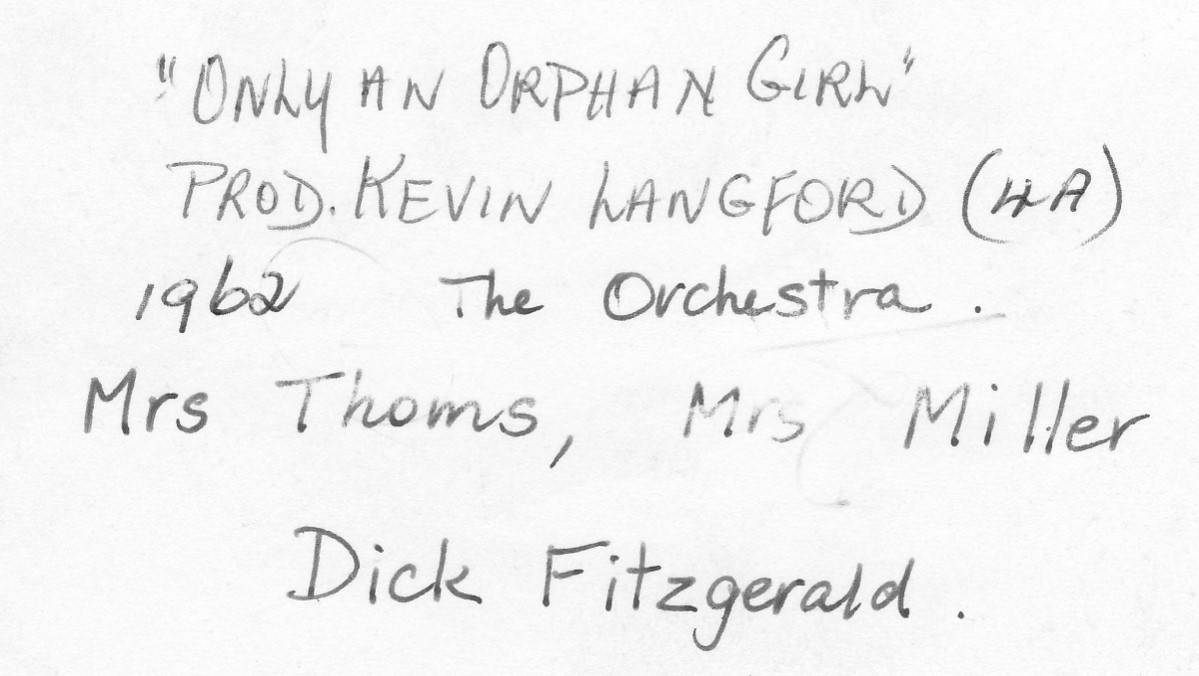 "ONLY AN ORPHAN GIRL"
PROD. KEVIN LANGFORD (4A)
1962 The Orchestra.
Mrs Thoms, Mrs Miller
Dick Fitzgerald.